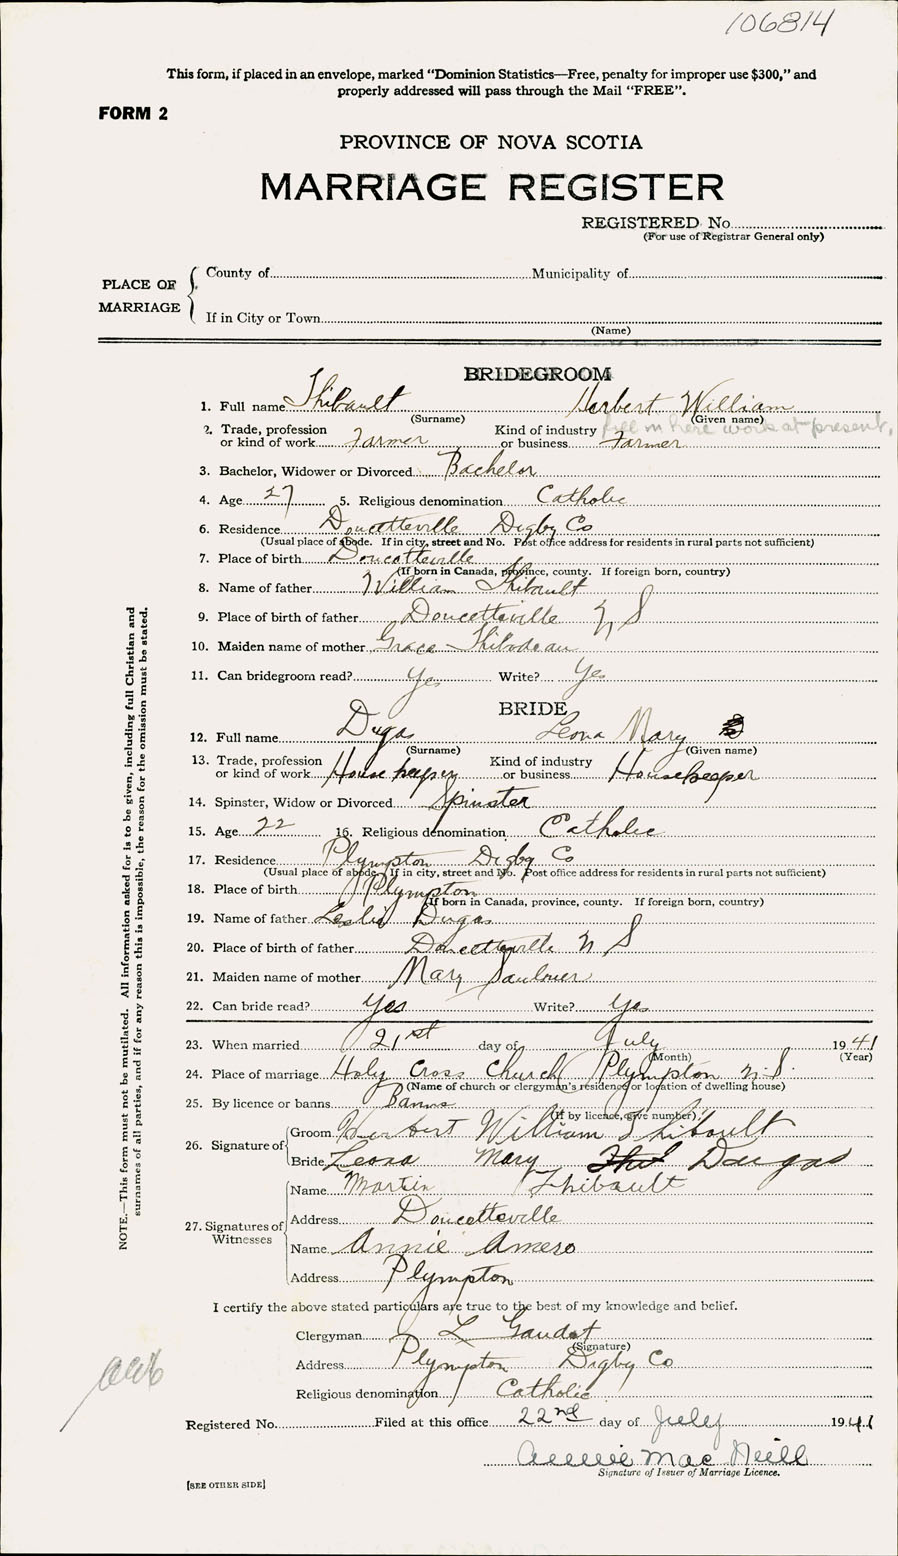 106814
This form, if placed in an envelope, marked “Dominion Statistics—Free, penalty for improper use $300,” and
properly addressed will pass through the Mail “FREE”.
FORM 2
PROVINCE OF NOVA SCOTIA
MARRIAGE REGISTER
REGISTERED No.
(For use of Registrar General only)
PLACE OF MARRIAGE
County of Municipality of
If in City or Town
(Name)
BRIDEGROOM
1. Full name Thibault Herbert William
(Surname) (Given name)
fill in here work at present.
2. Trade, profession or kind of work Farmer Kind of industry or business Farmer
3. Bachelor, Widower or Divorced Bachelor
4. Age 27 5. Religious denomination Catholic
6. Residence Doucetteville Digby Co
(Usual place of abode. If in city, street and No. Post office address for residents in rural parts not sufficient)
7. Place of birth Doucetteville
(If born in Canada, province, county. If foreign born, country)
8. Name of father William Thibault
9. Place of birth of father Doucetteville N S
10. Maiden name of mother Grace Thibodeau
11. Can bridegroom read? Yes Write? Yes
BRIDE
12. Full name Dugas Leona Mary
(Surname) (Given name)
13. Trade, profession or kind of work Housekeeper Kind of industry or business Housekeeper
14. Spinster, Widow or Divorced Spinster
15. Age 22 16. Religious denomination Catholic
17. Residence Plympton Digby Co
(Usual place of abode. If in city, street and No. Post office address for residents in rural parts not sufficient)
18. Place of birth Plympton
(If born in Canada, province, county. If foreign born, country)
19. Name of father Leslie Dugas
20. Place of birth of father Doucetteville N S
21. Maiden name of mother Mary Saulnier
22. Can bride read? Yes Write? Yes
23. When married 21st day of July 1941
(Month) (Year)
24. Place of marriage Holy Cross Church Plympton N.S.
(Name of church or clergyman's residence or location of dwelling house)
25. By licence or banns Banns
(If by licence, give number)
26. Signature of
Groom Herbert William Thibault
Bride Leona Mary Daugas
27. Signatures of Witnesses
Name Martin Thibault
Address Doucetteville
Name Annie Amero
Address Plympton
I certify the above stated particulars are true to the best of my knowledge and belief.
Clergyman L Gaudet
(Signature)
Address Plympton Digby Co
Religious denomination Catholic
Registered No. Filed at this office 22nd day of July 1941
Annie Mac Neill
Signature of Issuer of Marriage Licence.
[SEE OTHER SIDE]
NOTE.—This form must not be mutilated. All information asked for is to be given, including full Christian and
surnames of all parties, and if for any reason this is impossible, the reason for the omission must be stated.